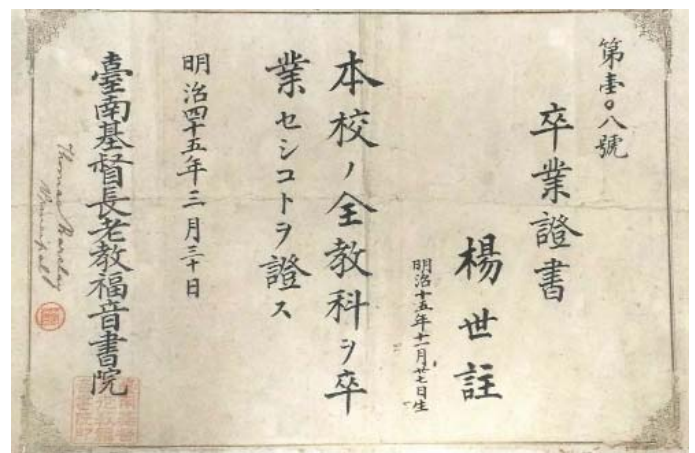 第壹〇八號
卒業證書
楊世註
明治十五年十一月廿七日生
本校ノ全教科ヲ卒
業セシコトヲ證ス
明治四十五年三月三十日
臺南基督長老教福音書院
Thomas Barclay
Principal